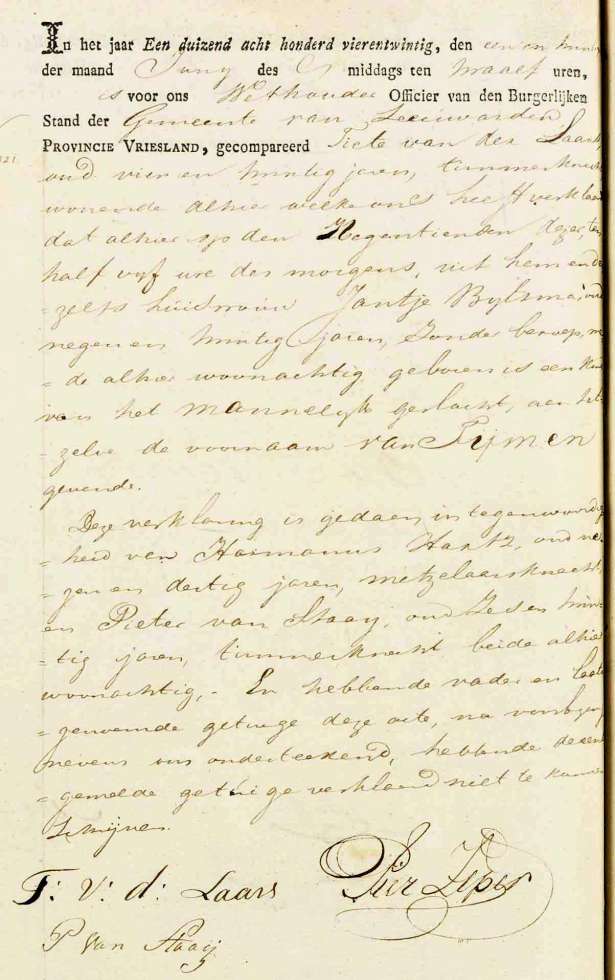 In het jaar Een duizend acht honderd vierentwintig, den een en twin
der maand Juny des middags ten twaalf uren,
is voor ons Wethouder Officier van den Burgerlijken
Stand der Gemeente van Leeuwarden
PROVINCIE VRIESLAND, gecompareerd Tiete van der Laars
oud vier en twintig jaren, timmerknecht
wonende alhier welke ons heeft verklaard
dat alhier op den Negentienden dezer, ten
half vyf ure des morgens, uit hem en de
zelfs huisvrouw Jantje Bylsma, oud
negen en twintig jaren, zonder beroep, me
=de alhier woonachtig geboren is een kind
van het mannelijk geslacht, aan het
=zelve de voornaam van Tijmen
gevende.
Deze verklaring is gedaan, in tegenwoordig
=heid van Harmanus Hartz, oud ne
=gen en dertig jaren, metzelaarsknecht
en Pieter van Staaij, oud zes en twin
=tig jaren, timmerknecht beide alhier
woonachtig,- En hebbende vader en laatst
=genoemde getuige deze acte, na voorlezing
nevens ons onderteekend, hebbende de eerst
=gemelde getuige verklaard niet te kunnen
schrijven.
T: V: d: Laars
Pier Zeper
P van Staaij